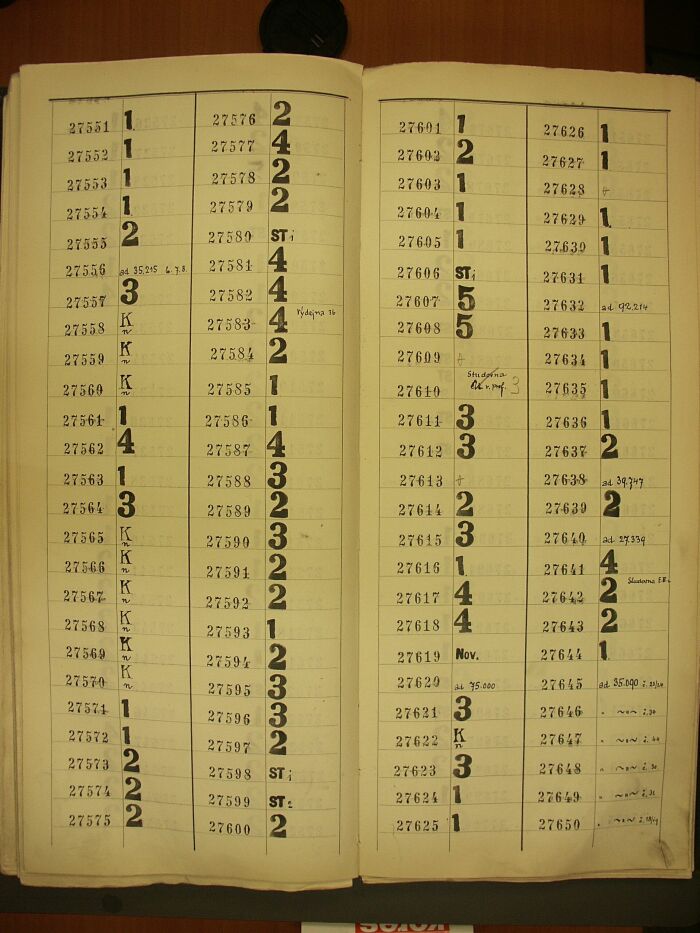 27551 1
27552 1
27553 1
27554 1
27555 2
27556 ad 35,215 6.7.8.
27557 3
27558 K n
27559 K n
27560 K n
27561 1
27562 4
27563 1
27564 3
27565 K n
27566 K n
27567 K n
27568 K n
27569 K n
27570 K n
27571 1
27572 1
27573 2
27574 2
27575 2
27576 2
27577 4
27578 2
27579 2
27580 ST1
27581 4
27582 4
27583 4 Výdejna 36
27584 2
27585 1
27586 1
27587 4
27588 3
27589 2
27590 3
27591 2
27592 2
27593 1
27594 2
27595 3
27596 3
27597 2
27598 ST1
27599 ST2
27600 2
27601 1
27602 2
27603 1
27604 1
27605 1
27606 ST1
27607 5
27608 5
27609
27610 Studovna v. prof. 3
27611 3
27612 3
27613
27614 2
27615 3
27616 1
27617 4
27618 4
27619 Nov.
27620 ad 75.000
27621 3
27622 K n
27623 3
27624 1
27625 1
27626 1
27627 1
27628
27629 1
27630 1
27631 1
27632 ad 92.214
27633 1
27634 1
27635 1
27636 1
27637 2
27638 ad 39.747
27639 2
27640 ad 27.339
27641 4
27642 2 Studovna
27643 2
27644 1
27645 ad 35.090
27646
27647
27648
27649
27650